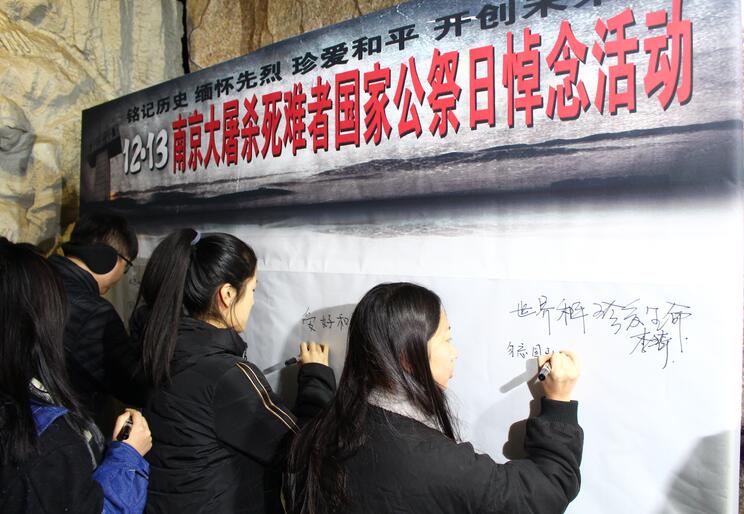 铭记历史 缅怀先烈 珍爱和平 开创未来
12·13 南京大屠杀死难者国家公祭日悼念活动
世界和平 珍爱生命
爱好和